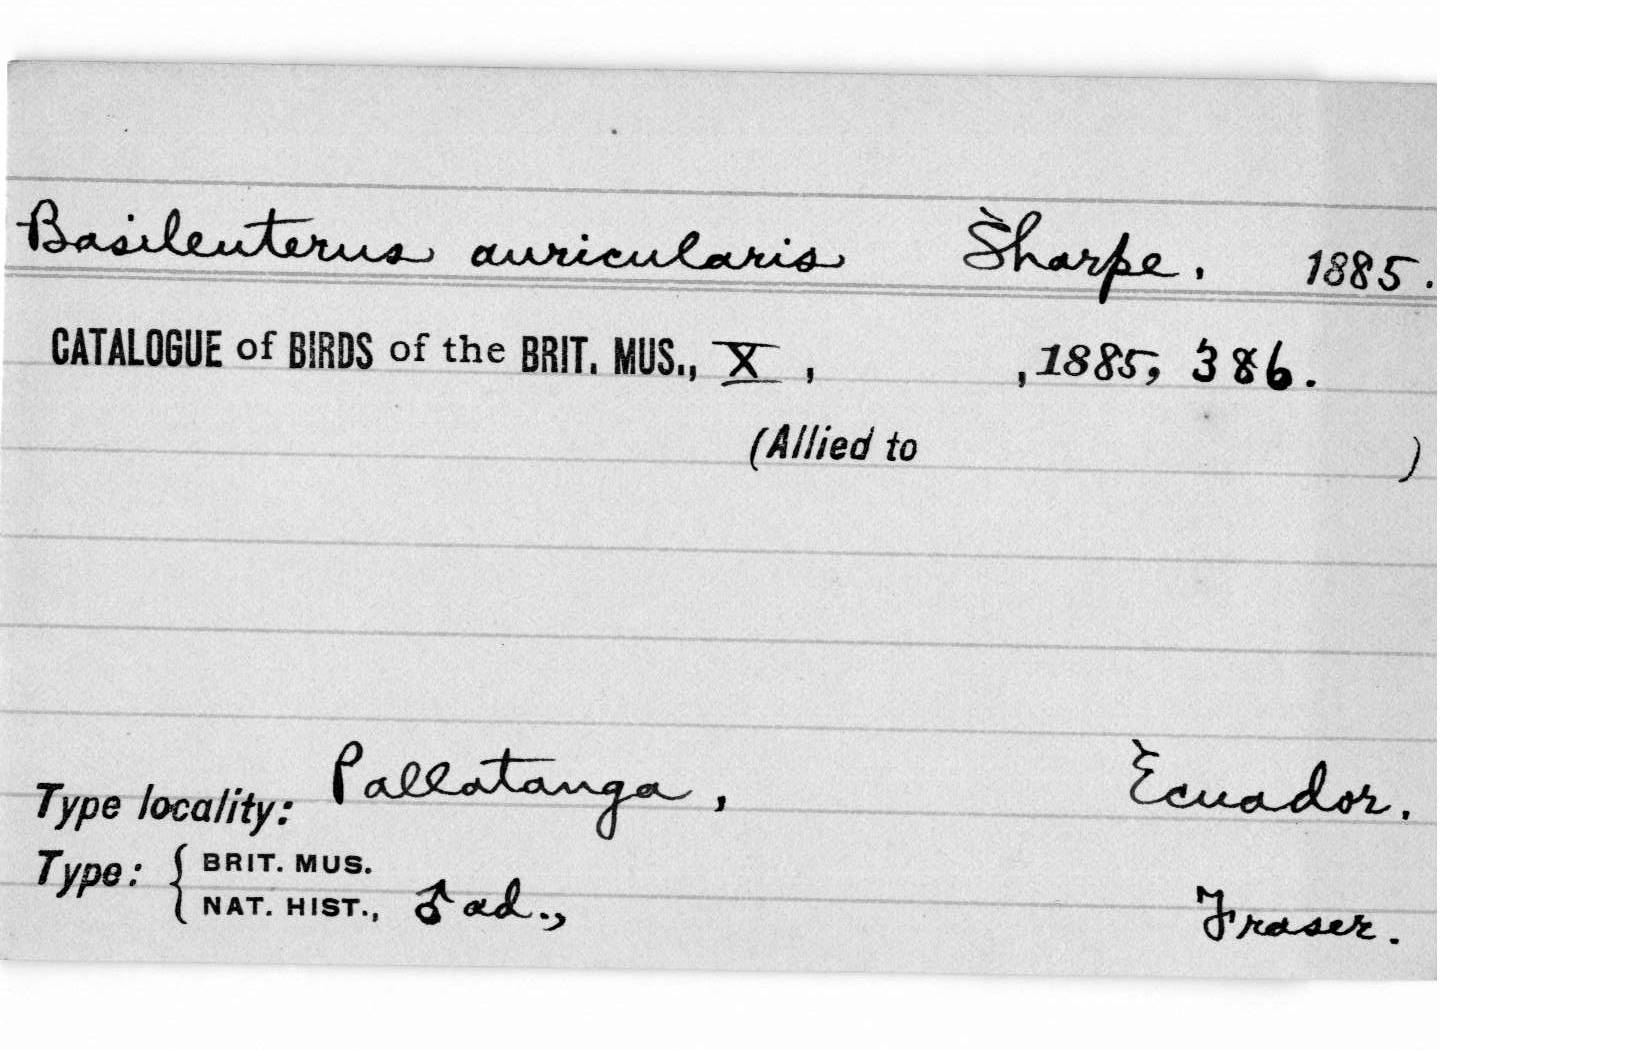 Basileuterus auricularis Sharpe, 1885.
CATALOGUE of BIRDS of the BRIT. MUS., X, , 1885, 386.
(Allied to )
Type locality: Pallatanga, Ecuador.
Type: { BRIT. MUS.
NAT. HIST., ♂ ad., Fraser.